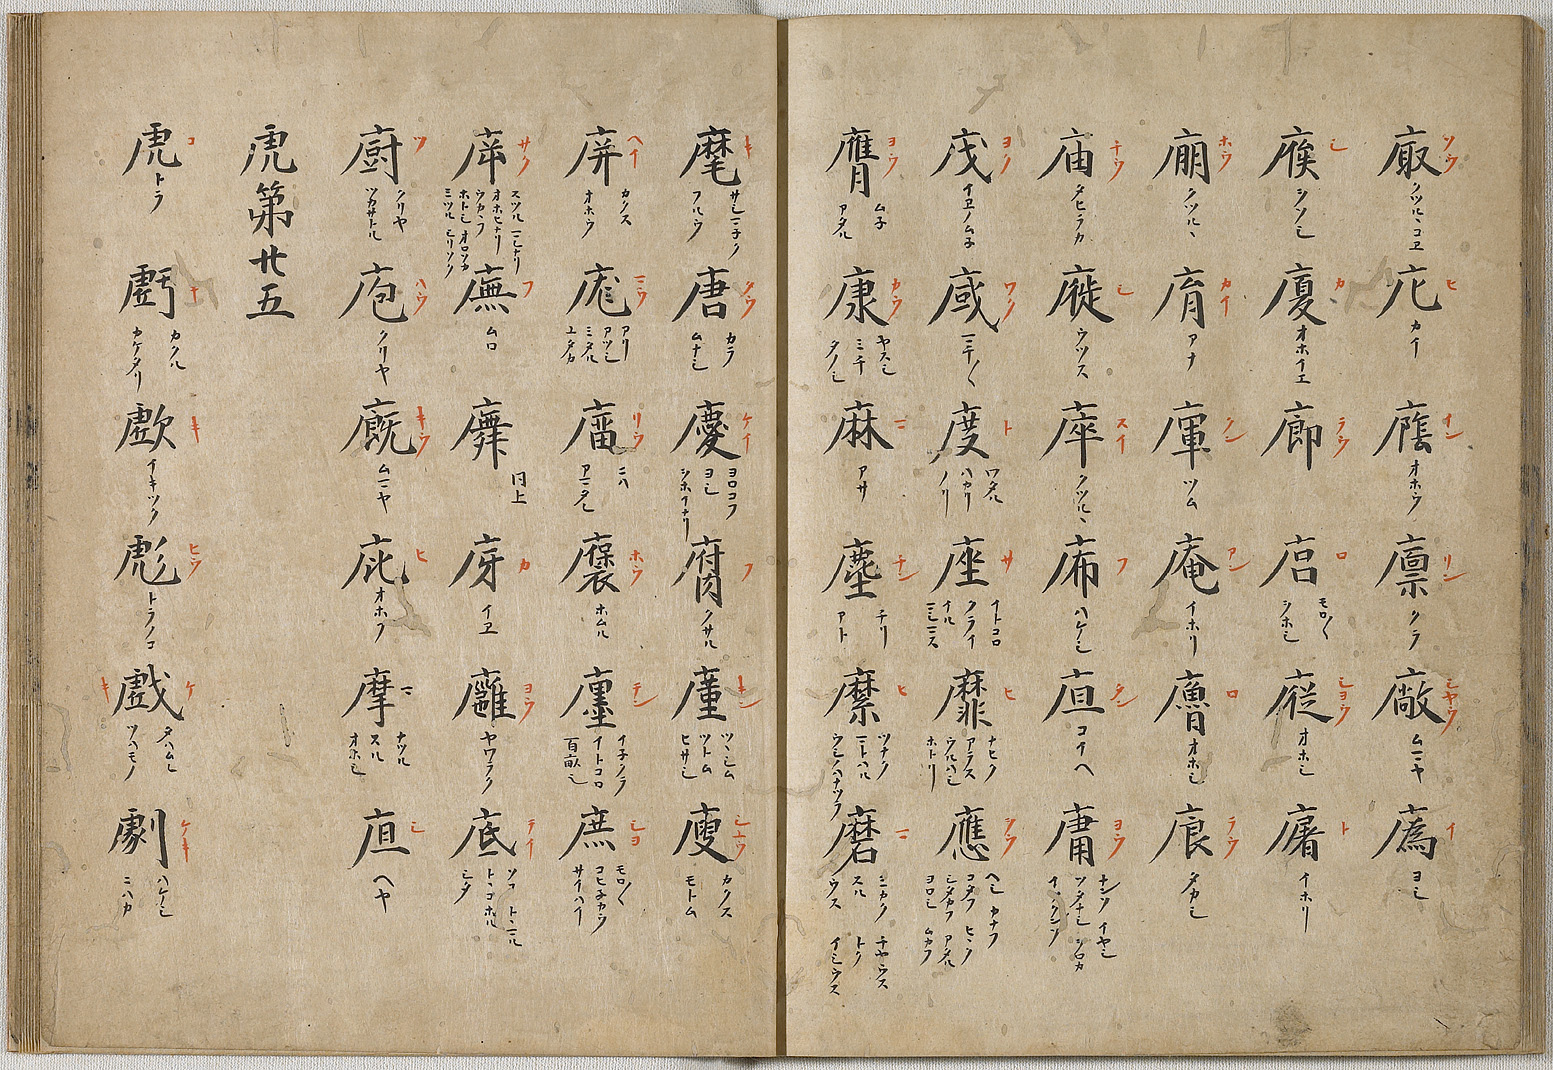 廄 ソウ クツル、コヱ
庀 ヒ カイ
䕃 イン オホウ
廪 リン クラ
厰 シヤウ ムマヤ
蔿 イ ヨシ
㢈 シ シソシ
廈 カ オホイエ
廊 ラウ
㡷 ロ モロ〱 シホシ
㢔 シヨウ オホシ
屠 ト イホリ
庿 ホウ クツル、
㡯 カイ アナ
㡓 クン ツム
庵 アン イホリ
㢚 ロ オホシ
㢃 ラウ タカシ
庙 チウ タヒラカ
㢋 シ ウツス
䔹 スイ クツル、
庯 フ ハケシ
㡺 タン コイヘ
庸 ヨウ ナンソ イヤシ ツタナシ ソロカ
戊 ヨノ イヱノムネ
㦯 ワク ミチ〱
度 ト ワタル ハカリ ノリ
座 サ イトコロ クライ ナル
靡 ヒ ナヒク アラス ウルハシ ホトリ
應 ヨウ ヘシ カナフ コタフ ヒヽク シタカフ アタル ヨロシ ムカフ
膺 ヨウ ムネ アタル
康 カウ ヤスシ ミチ タノシ
麻 マ アサ
塵 チン チリ アト
縻 ヒ ツナク マトハル ウシハナツラ
磨 マ ミカク スル ウス チヤウス トク イシウス
麾 キ サシマネク フルウ
唐 タウ カラ ムナシ
慶 ケイ ヨロコフ ヨシ シホイナリ
腐 フ クサル
廑 キン ツヽシム ツトム ヒサシ
廋 シユウ カクス モトム
屏 ヘイ カクス オホウ
庬 ミウ アリ アツシ ミタル ユタカ
廇 リウ ニハ アマタシ
襃 ホウ ホムル
廛 テン イチクラ イトコロ 百畝シ
庶 シヨ モロ〱 コヒネカウ サイハイ
庠 サク スツル オホヒナリ ウカヽフ ホトシ オロソカ ミツル シリソク
廡 フ ムロ
㢝 同上
庌 カ イヱ
廱 ヨウ ヤワラク
底 テイ ソコ トヽマル トヽコホル シタ
厨 ツ クリヤ ツカサトル
庖 ハウ クリヤ
廐 キウ ムマヤ
庇 ヒ オホフ
摩 マ ナツル スル オホシ
㡳 シ ヘヤ
虎第廿五
虎 コ トラ
虧 キ カクル カケタリ
歔 キ イキツク
彪 ヒウ トラノコ
戯 ケ キ タハムレ ツハモノ
劇 ケキ ハケシ ニハカ